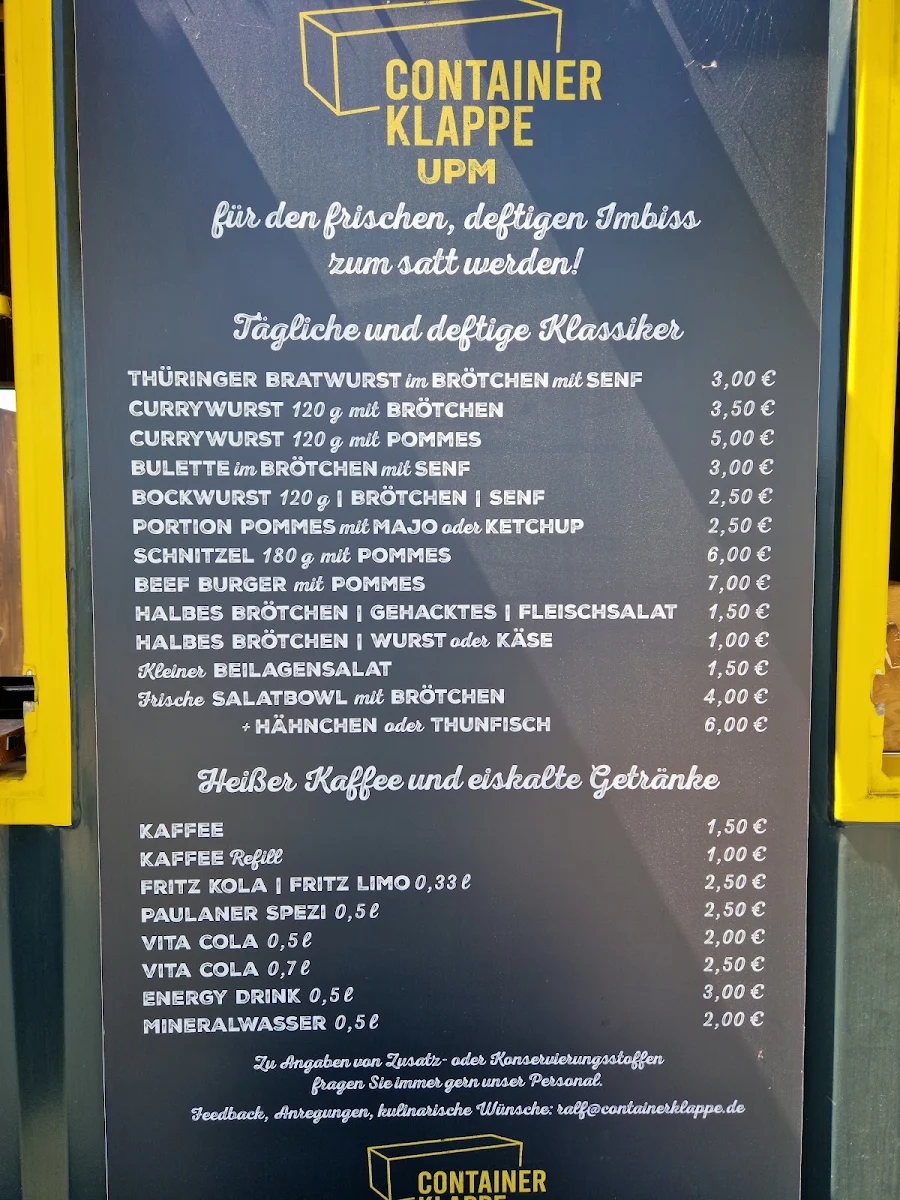 CONTAINER
KLAPPE
UPM
für den frischen, deftigen Imbiss
zum satt werden!
Tägliche und deftige Klassiker
THÜRINGER BRATWURST im BRÖTCHEN mit SENF 3,00 €
CURRYWURST 120 g mit BRÖTCHEN 3,50 €
CURRYWURST 120 g mit POMMES 5,00 €
BULETTE im BRÖTCHEN mit SENF 3,00 €
BOCKWURST 120 g | BRÖTCHEN | SENF 2,50 €
PORTION POMMES mit MAJO oder KETCHUP 2,50 €
SCHNITZEL 180 g mit POMMES 6,00 €
BEEF BURGER mit POMMES 7,00 €
HALBES BRÖTCHEN | GEHACKTES | FLEISCHSALAT 1,50 €
HALBES BRÖTCHEN | WURST oder KÄSE 1,00 €
Kleiner BEILAGENSALAT 1,50 €
Frische SALATBOWL mit BRÖTCHEN 4,00 €
+ HÄHNCHEN oder THUNFISCH 6,00 €
Heißer Kaffee und eiskalte Getränke
KAFFEE 1,50 €
KAFFEE Refill 1,00 €
FRITZ KOLA | FRITZ LIMO 0,33 l 2,50 €
PAULANER SPEZI 0,5 l 2,50 €
VITA COLA 0,5 l 2,00 €
VITA COLA 0,7 l 2,50 €
ENERGY DRINK 0,5 l 3,00 €
MINERALWASSER 0,5 l 2,00 €
Zu Angaben von Zusatz- oder Konservierungsstoffen
fragen Sie immer gern unser Personal.
Feedback, Anregungen, kulinarische Wünsche: ralf@containerklappe.de
CONTAINER
KLAPPE